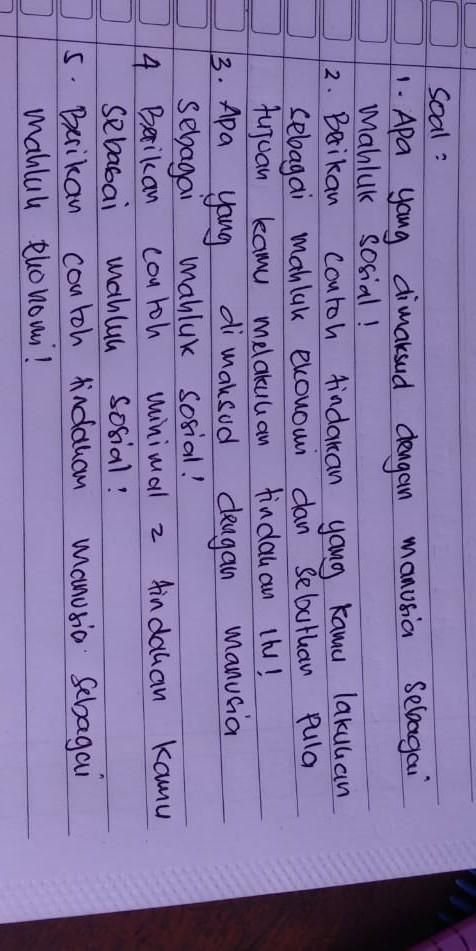 Soal :
1. Apa yang dimaksud dengan manusia sebagai
Mahluk sosial!
2. Berikan contoh tindakan yang kamu lakukan
sebagai mahluk ekonomi dan sebutkan pula
tujuan kamu melakukan tindakan itu!
3. Apa yang dimaksud dengan manusia
sebagai mahluk sosial!
4 Berikan contoh minimal 2 tindakan kamu
sebagai mahluk sosial!
5. Berikan contoh tindakan manusia sebagai
mahluk ekonomi!